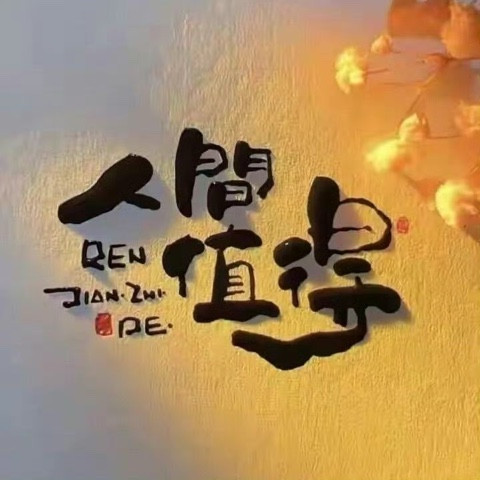 人間
值得
REN
JIAN·ZHI·
DE·